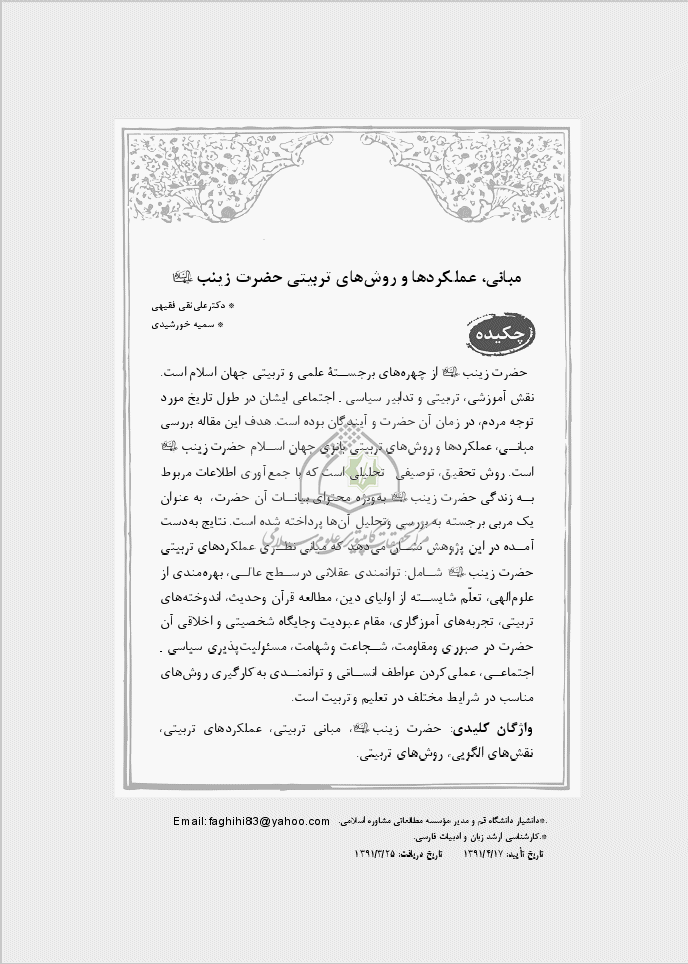 مبانی، عملکردها و روش‌های تربیتی حضرت زینب علیهاالسلام
* دکتر علی‌نقی فقیهی
* سمیه خورشیدی
چکیده
حضرت زینب علیهاالسلام از چهره‌های برجستهٔ علمی و تربیتی جهان اسلام است.
نقش آموزشی، تربیتی و تدابیر سیاسی ـ اجتماعی ایشان در طول تاریخ مورد
توجه مردم، در زمان آن حضرت و آیندگان بوده است. هدف این مقاله بررسی
مبانی، عملکردها و روش‌های تربیتی بانوی جهان اسلام حضرت زینب علیهاالسلام
است. روش تحقیق، توصیفی تحلیلی است که با جمع‌آوری اطلاعات مربوط
به زندگی حضرت زینب علیهاالسلام به‌ویژه محتوای بیانات آن حضرت، به عنوان
یک مربی برجسته به بررسی وتحلیل آن‌ها پرداخته شده است. نتایج به‌دست
آمده در این پژوهش نشان می‌دهد که مبانی نظری عملکردهای تربیتی
حضرت زینب علیهاالسلام شامل: توانمندی عقلانی در سطح عالی، بهره‌مندی از
علوم‌الهی، تعلّم شایسته از اولیای دین، مطالعه قرآن وحدیث، اندوخته‌های
تربیتی، تجربه‌های آموزگاری، مقام عبودیت وجایگاه شخصیتی و اخلاقی آن
حضرت در صبوری ومقاومت، شجاعت وشهامت، مسئولیت‌پذیری سیاسی ـ
اجتماعی، عملی کردن عواطف انسانی و توانمندی به کارگیری روش‌های
مناسب در شرایط مختلف در تعلیم وتربیت است.
واژگان کلیدی: حضرت زینب علیهاالسلام، مبانی تربیتی، عملکردهای تربیتی،
نقش‌های الگویی، روش‌های تربیتی.
مرکز تحقیقات کامپیوتری علوم اسلامی
*.دانشیار دانشگاه قم و مدیر مؤسسه مطالعاتی مشاوره اسلامی. Email: faghihi83@yahoo.com
*.کارشناسی ارشد زبان و ادبیات فارسی.
تاریخ دریافت: ۱۳۹۱/۳/۲۵ تاریخ تأیید: ۱۳۹۱/۴/۱۷